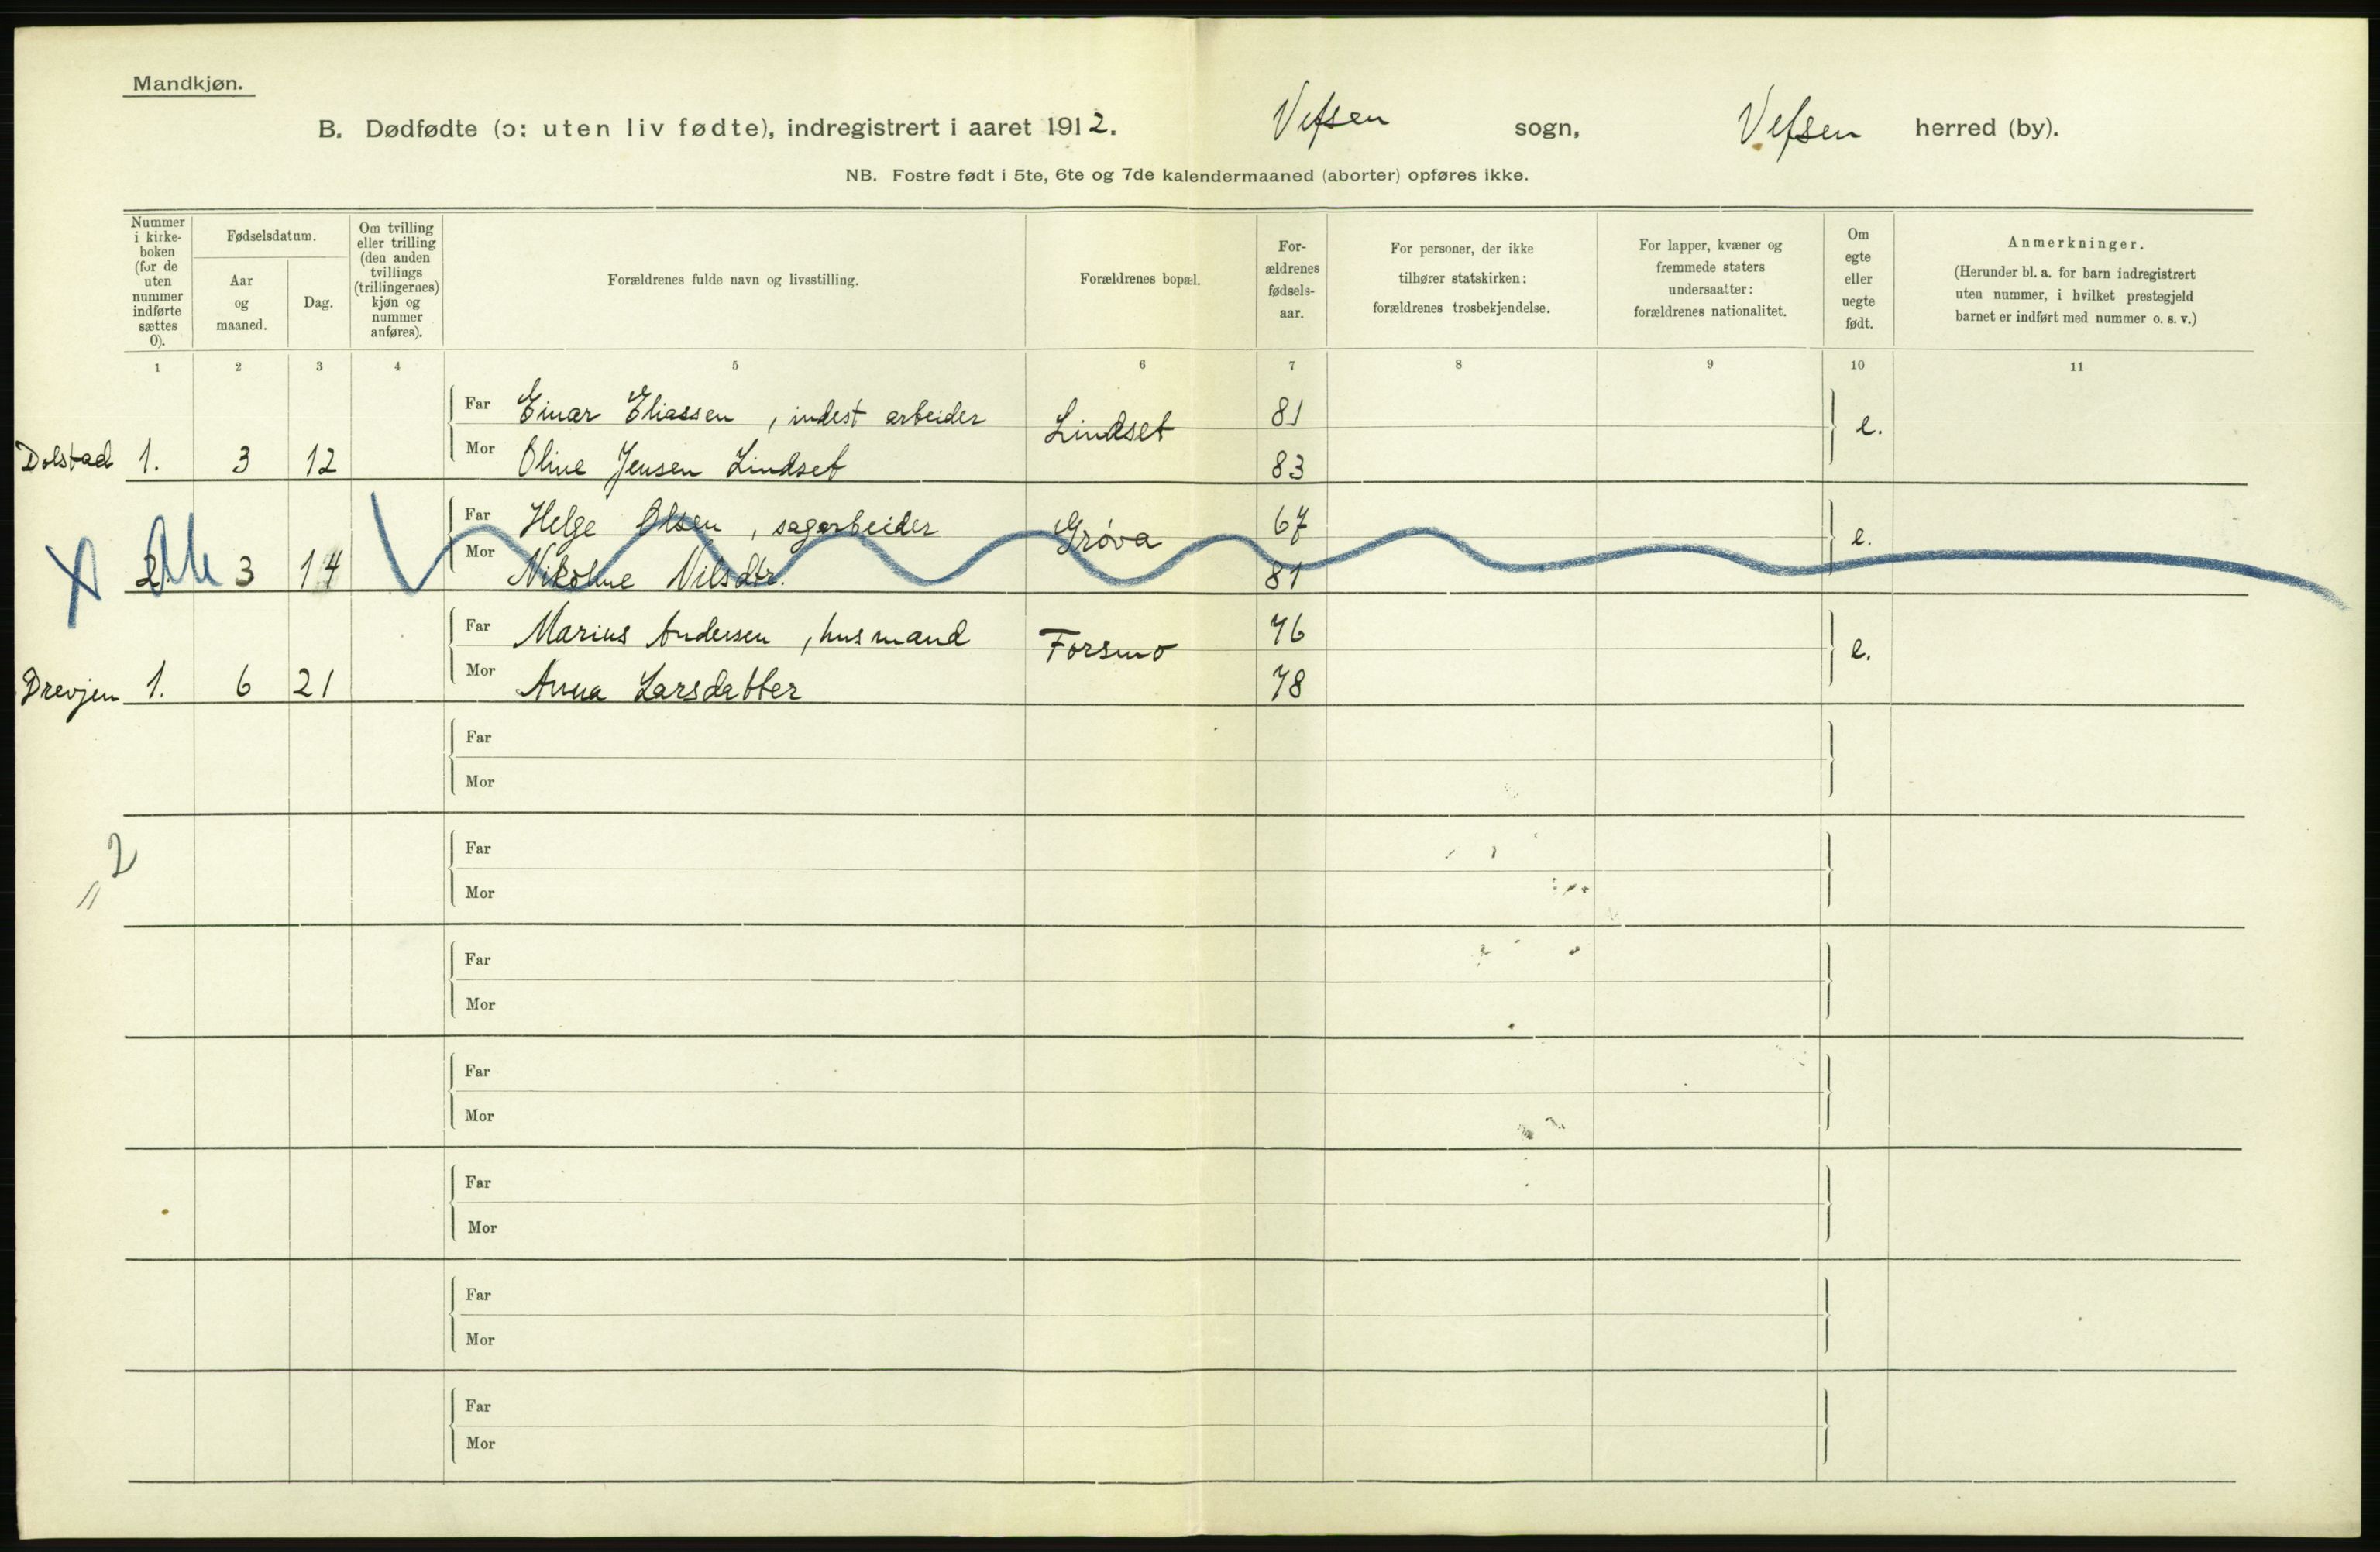 Mandkjøn.
B. Dødfødte (ɔ: uten liv fødte), indregistrert i aaret 1912. Vefsen sogn, Vefsen herred (by).
NB. Fostre født i 5te, 6te og 7de kalendermaaned (aborter) opføres ikke.
Nummer i kirkeboken (for de uten nummer indførte sættes 0).
Fødselsdatum.
Aar og maaned.
Dag.
Om tvilling eller trilling (den anden tvillings (trillingernes) kjøn og nummer anføres).
Forældrenes fulde navn og livsstilling.
Forældrenes bopæl.
For-ældrenes fødsels-aar.
For personer, der ikke tilhører statskirken: forældrenes trosbekjendelse.
For lapper, kvæner og fremmede staters undersaatter: forældrenes nationalitet.
Om egte eller uegte født.
Anmerkninger.
(Herunder bl. a. for barn indregistrert uten nummer, i hvilket prestegjeld barnet er indført med nummer o. s. v.)
1 2 3 4 5 6 7 8 9 10 11
Far Einar Eliassen, indest arbeider Lindset 81 e.
Dolstad 1. 3 12 Mor Oline Jensen Lindset 83
Far Helge Olsen, sagarbeider Grøva 67 e.
2. 3 14 Mor Nikoline Nilsdtr. 81
Far Marius Andersen, husmand Forsmo 76 e.
Drevjen 1. 6 21 Mor Anna Larsdatter 78
Far
Mor
2
Far
"
Mor
Far
Mor
Far
Mor
Far
Mor
Far
Mor
Far
Mor